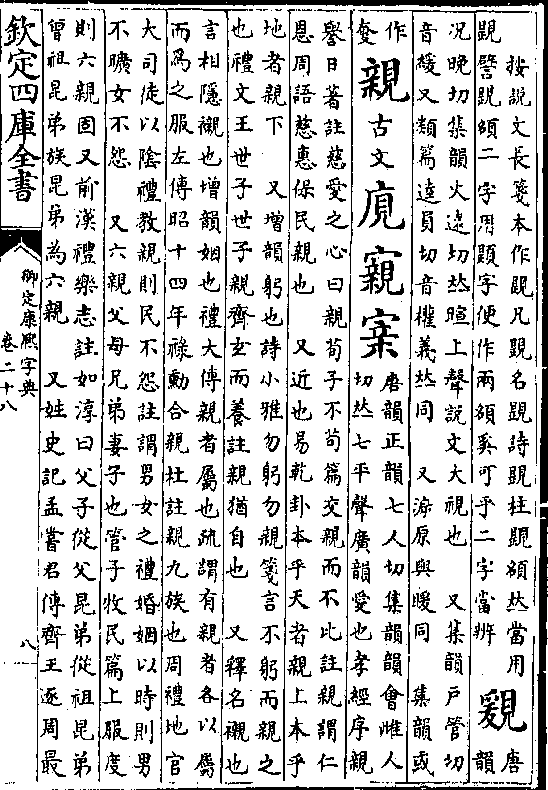 按說文長箋本作覞凡覞名覞詩覞杜覞頌𠀤當用
覞譬說頌二字因顯字便作兩頌奚可乎二字當辨
䙮
唐韻
況晚切集韻火遠切𠀤暄上聲說文大視也 又集韻戸管切
音緩又類篇遠員切音權義𠀤同 又海原與暖同 集韻或
作㪅
親
古文
𡩁寴寀
唐韻正韻七人切集韻韻會雌人
切𠀤七平聲廣韻愛也孝經序親
譽日著註慈愛之心曰親荀子不苟篇交親而不比註親謂仁
恩周語慈惠保民親也 又近也易乾卦本乎天者親上本乎
地者親下 又增韻躬也詩小雅勿躬勿親箋言不躬而親之
也禮文王世子世子親齊𤣥而養註親猶自也 又釋名襯也
言相隱襯也增韻姻也禮大傳親者屬也疏謂有親者各以屬
而爲之服左傳昭十四年祿勳合親杜註親九族也周禮地官
大司徒以陰禮教親則民不怨註謂男女之禮婚姻以時則男
不曠女不怨 又六親父母兄弟妻子也管子牧民篇上服度
則六親固又前漢禮樂志註如淳曰父子從父昆弟從祖昆弟
曾祖昆弟族昆弟為六親 又姓史記孟嘗君傳齊王逐周最
欽定四庫全書
御定康熙字典
卷二十八
八